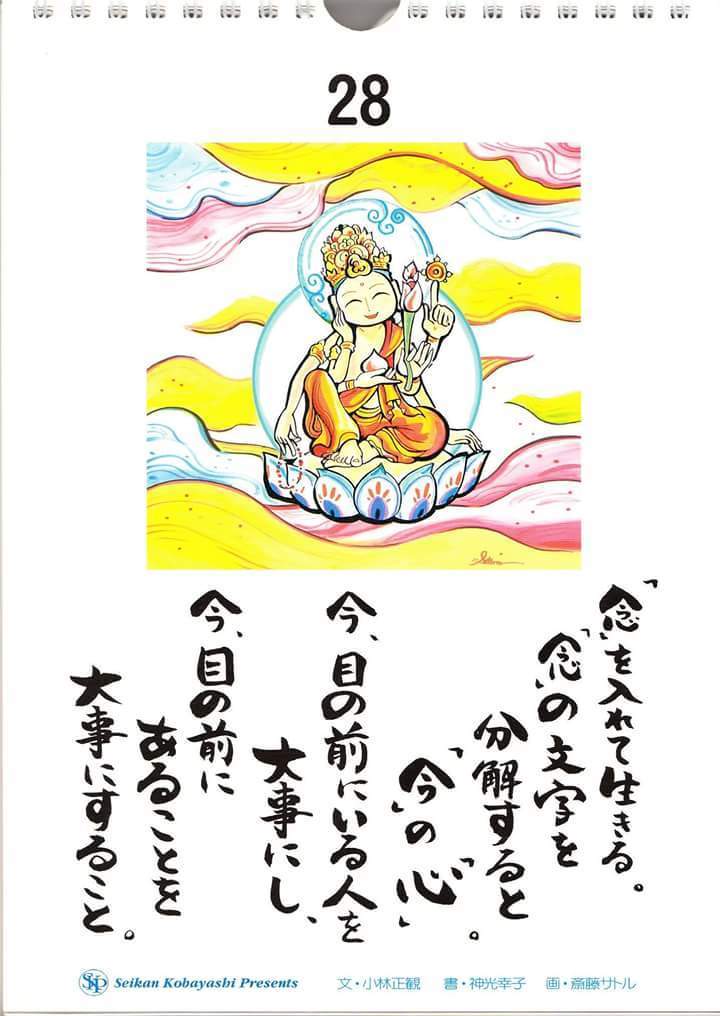 28
「念」を入れて生きる。
「念」の文字を
分解すると
「今」の「心」。
今、目の前にいる人を
大事にし、
今、目の前に
あることを
大事にすること。
Seikan Kobayashi Presents 文・小林正観 書・神光幸子 画・斎藤サトル